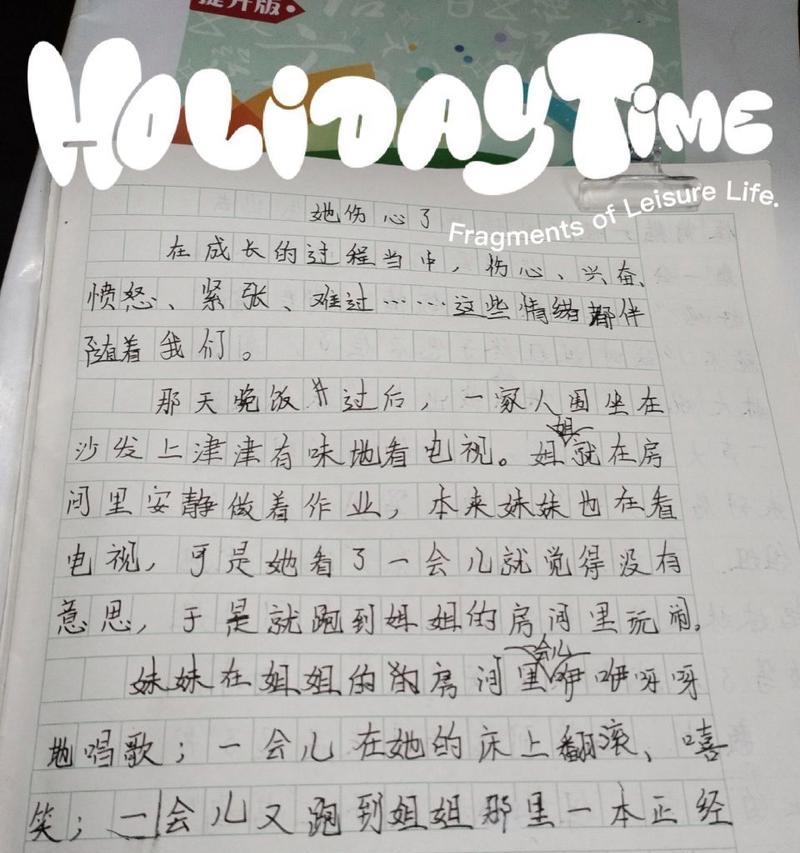 提升版
HOLIDAY TIME
Fragments of Leisure Life.
她伤心了
在成长的过程当中，伤心、兴奋、
愤怒、紧张、难过……这些情绪都伴
随着我们。
那天晚饭过后，一家人围坐在
沙发上津津有味地看电视。姐姐就在房
间里安静做着作业，本来妹妹也在看
电视，可是她看了一会儿就觉得没有
意思，于是就跑到姐姐的房间里玩闹。
妹妹在姐姐的房间里一会儿咿咿呀呀
地唱歌；一会儿在她的床上翻滚、嘻
笑；一会儿又跑到姐姐那里一本正经